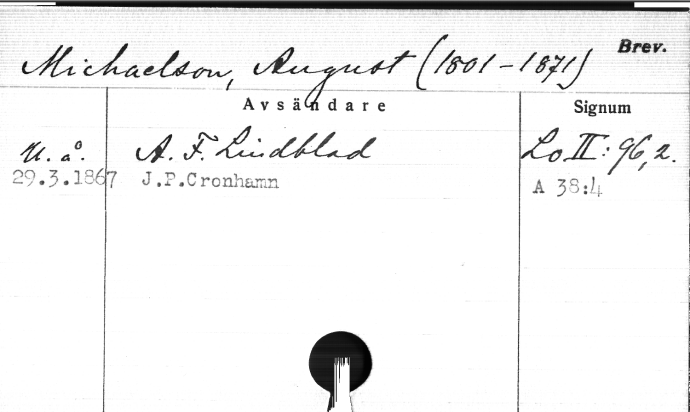 Brev.
Michaelson, August (1801-1871)
Avsändare Signum
U. å. A. F. Lindblad Lo II: 96,2.
29.3.1867 J.P.Cronhamn A 38:4